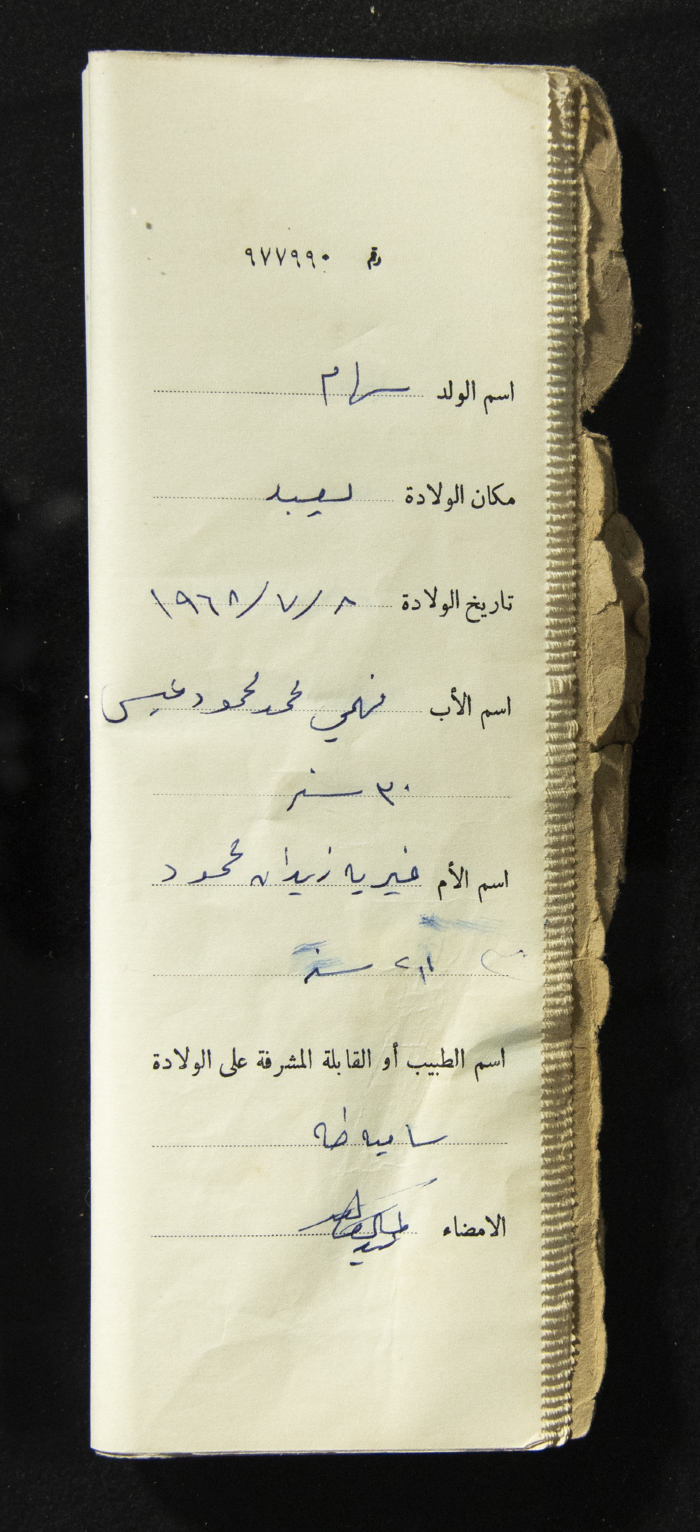 رقم ٩٧٧٩٩٠
اسم الولد سهام
مكان الولادة يعبد
تاريخ الولادة ٨/٧/١٩٦٨
اسم الأب فهمي محمد محمود عيسى
٣٠ سنه
اسم الأم خيريه زيدان محمود
سنه
اسم الطبيب أو القابلة المشرفة على الولادة
ساميه طه
الامضاء